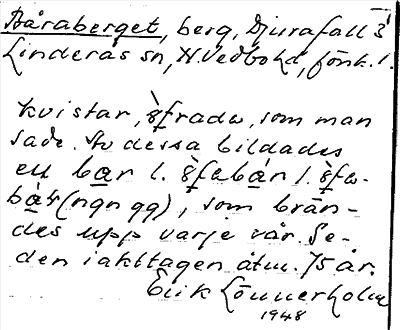 Båraberget, berg, Djurafall 3
Linderås sn, N. Vedbo hd, Jönk. l.
kvistar, som man
sade. Av dessa bildades
en bar l.
bàr (ngn gg), som brän-
des upp varje vår. Se-
den iakttagen åtm. 75 år.
Erik Lönnerholm
1948